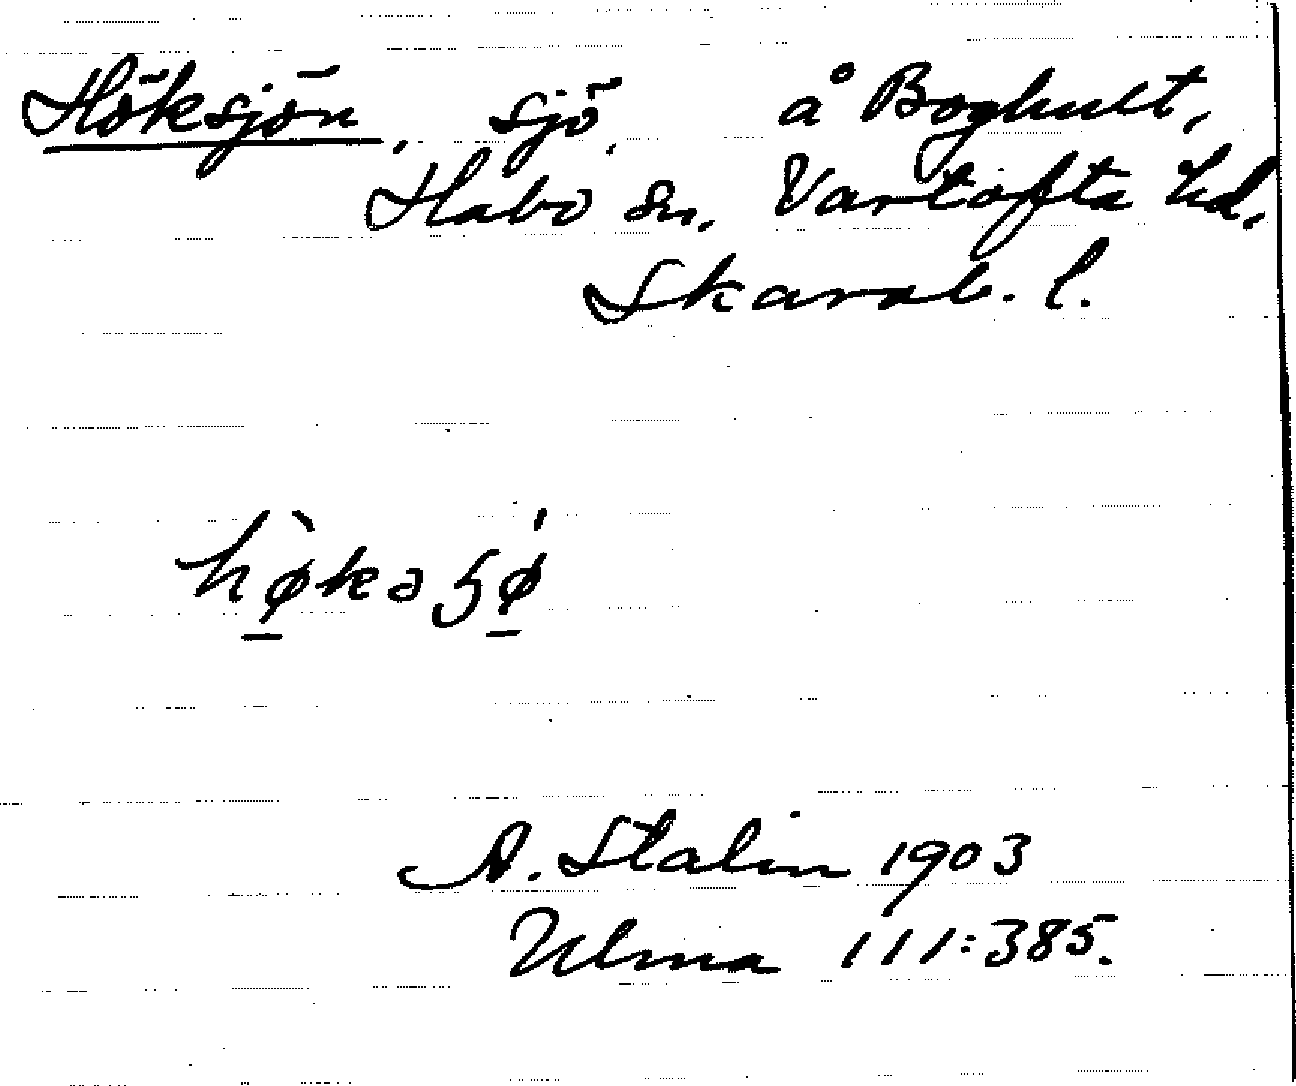 Höksjön, sjö, å Boghult,
Habo sn. Vartofta hd.
Skarab. l.
hø̠̀kəʃǿ̠
A. Stalin 1903
Ulma 111:385.